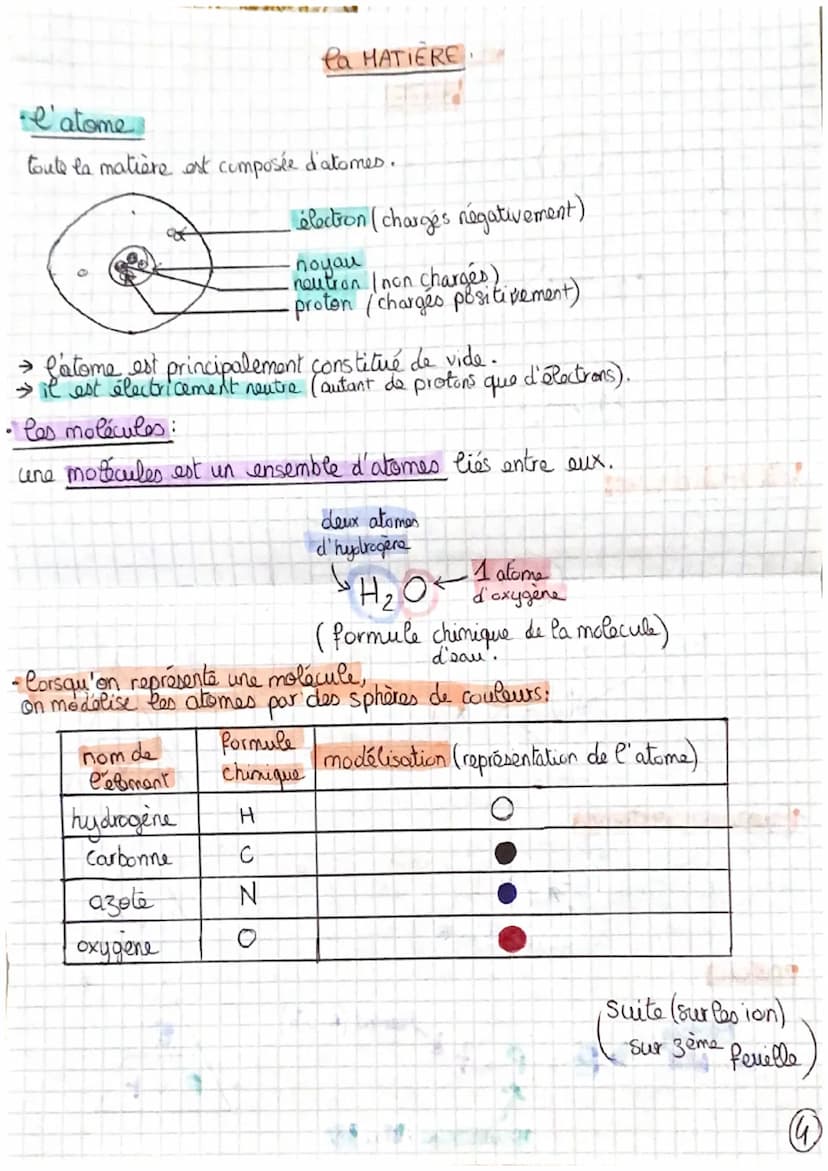 la MATIÈRE.
• l'atome
toute la matière est composée d'atomes.
électron (chargés négativement)
noyau
neutron (non chargés)
proton (chargés positivement)
→ l'atome est principalement constitué de vide.
→ il est électricement neutre (autant de protons que d'électrons).
• les molécules :
une molécules est un ensemble d'atomes liés entre eux.
deux atomes
d'hydrogène
H₂O
1 atome
d'oxygène
(formule chimique de la molecule)
d'eau.
- lorsqu'on représente une molécule,
on modélise les atomes par des sphères de couleurs :
nom de
l'élement
formule
chimique
modélisation (représentation de l'atome)
hydrogène H
Carbonne C
azote N
oxygène O
suite (sur les ion)
sur 3ème feuille
4